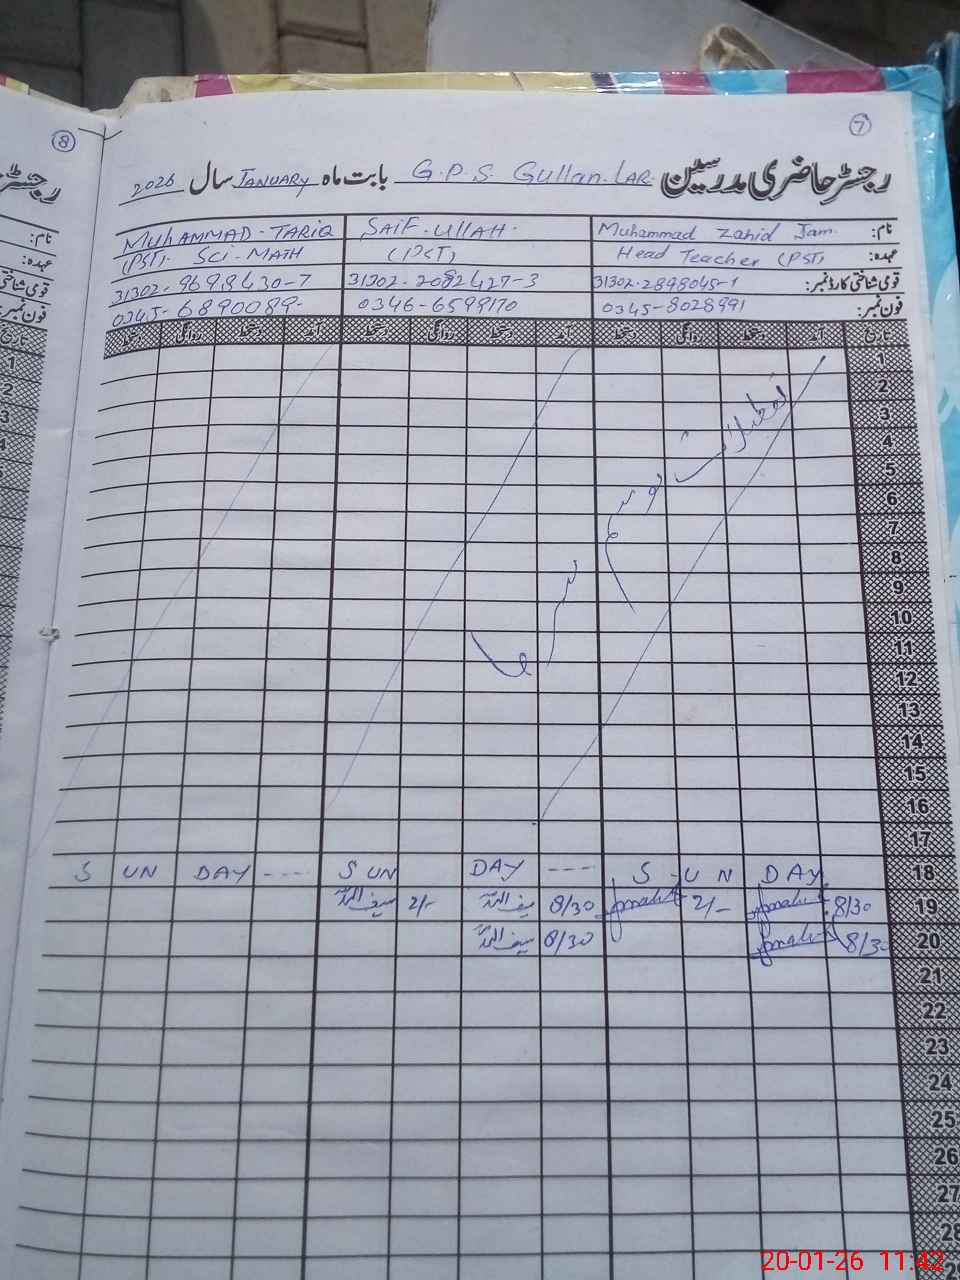 7
8
رجسٹر حاضری مدرسین G.P.S. Gullan LAR. بابت ماہ JANUARY سال 2026
نام: Muhammad Zahid Jam. SAIF-ULLAH. MUHAMMAD-TARIQ
عہدہ: Head Teacher (PST) (PST) (PST). SCI-MATH
قومی شناختی کارڈ نمبر: 31302-2898045-1 31302-2082427-3 31302-9698430-7
فون نمبر: 0345-8028991 0346-6599170 0345-6890089-
تاریخ آمد دستخط روانگی دستخط آمد دستخط روانگی دستخط آمد دستخط روانگی دستخط
1
2
3
4
5
6
7
8
9
10
11
12
13
14
15
16
17
تعطیلات موسم سرما
18 S UN DAY ---- S UN DAY ---- S U N DAY
19 8/30 2/- 8/30 سیف اللہ 2/- سیف اللہ
20 8/30 8/30 سیف اللہ
21
22
23
24
25
26
27
28
29
20-01-26 11:42